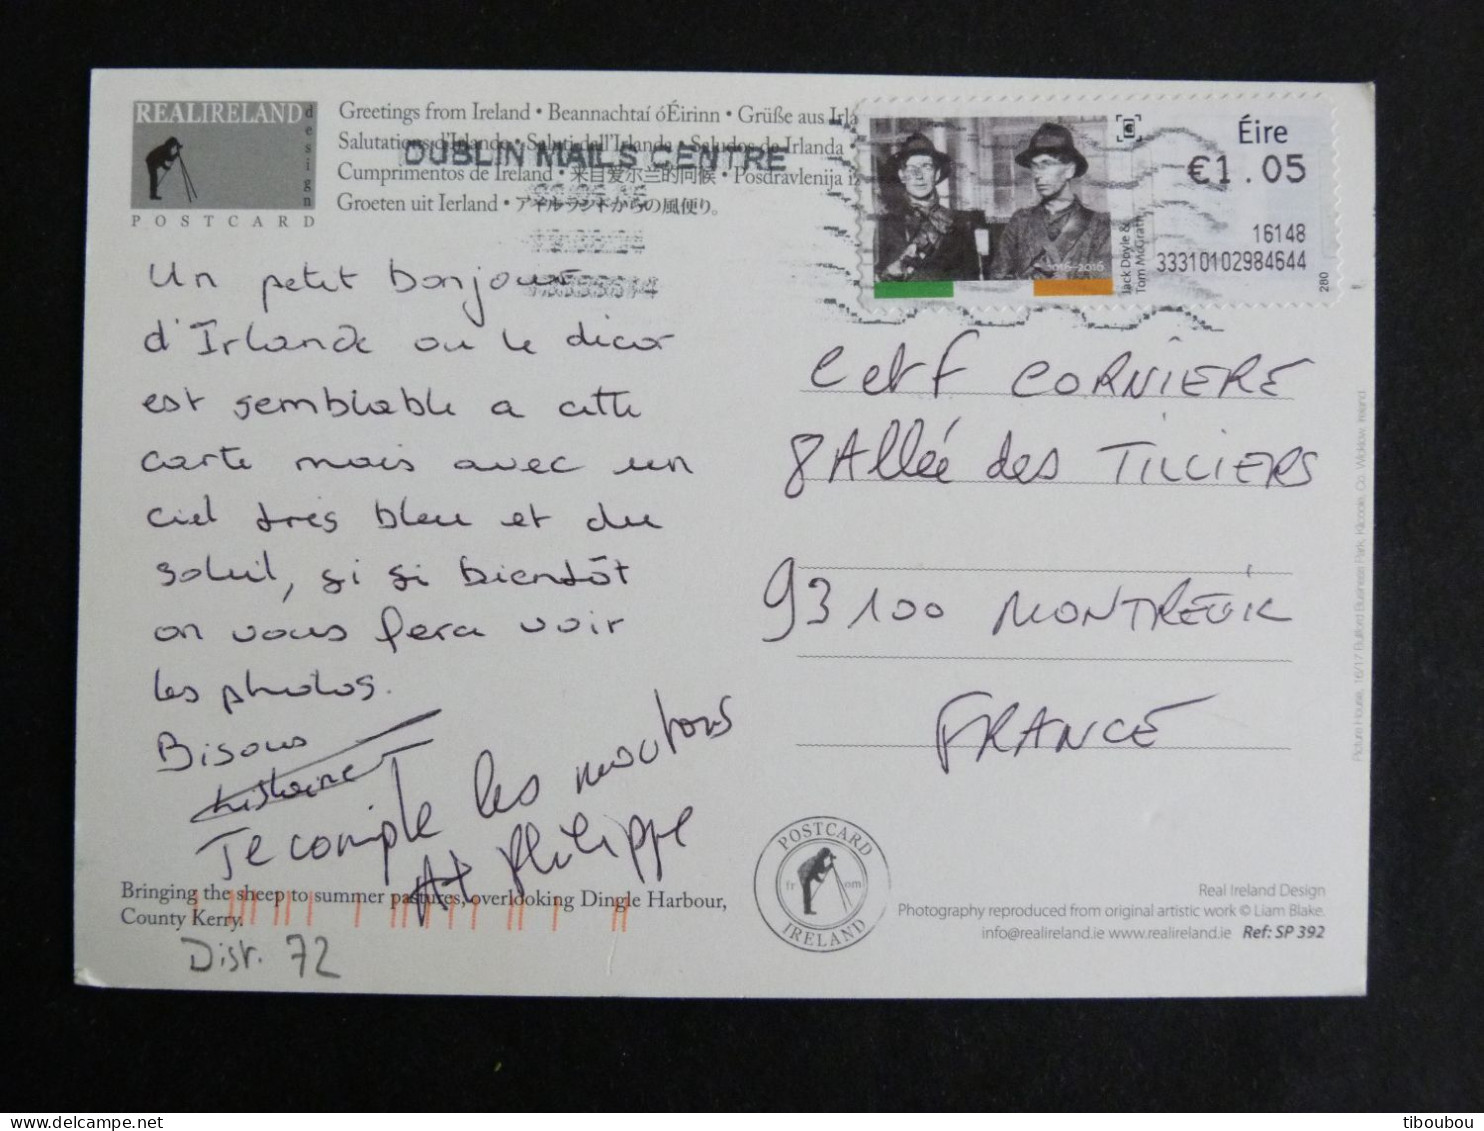 REALIRELAND
design
POSTCARD
Greetings from Ireland • Beannachtaí óÉirinn • Grüße aus Irla
Salutations d'Irlande • Saluti dall'Irlanda • Saludos de Irlanda •
Cumprimentos de Ireland • 来自爱尔兰的问候 • Posdravlenija iz
Groeten uit Ierland • アイルランドからの風便り。
DUBLIN MAILS CENTRE
Éire
€1.05
16148
33310102984644
280
Jack Doyle &
Tom McGrath
1916-2016
Un petit bonjour
d'Irlande ou le décor
est semblable a cette
carte mais avec un
ciel très bleu et du
soleil, si si bientôt
on vous fera voir
les photos.
Bisous
Je compte les moutons
At Philippe
C et F CORNIERE
8 Allée des TILLIERS
93100 MONTREUIL
FRANCE
Bringing the sheep to summer pastures, overlooking Dingle Harbour,
County Kerry.
Dist. 72
POSTCARD
from
IRELAND
Real Ireland Design
Photography reproduced from original artistic work © Liam Blake.
info@realireland.ie www.realireland.ie Ref: SP 392
Picture House, 16/17 Bulford Business Park, Kilcoole, Co. Wicklow, Ireland
tiboubou